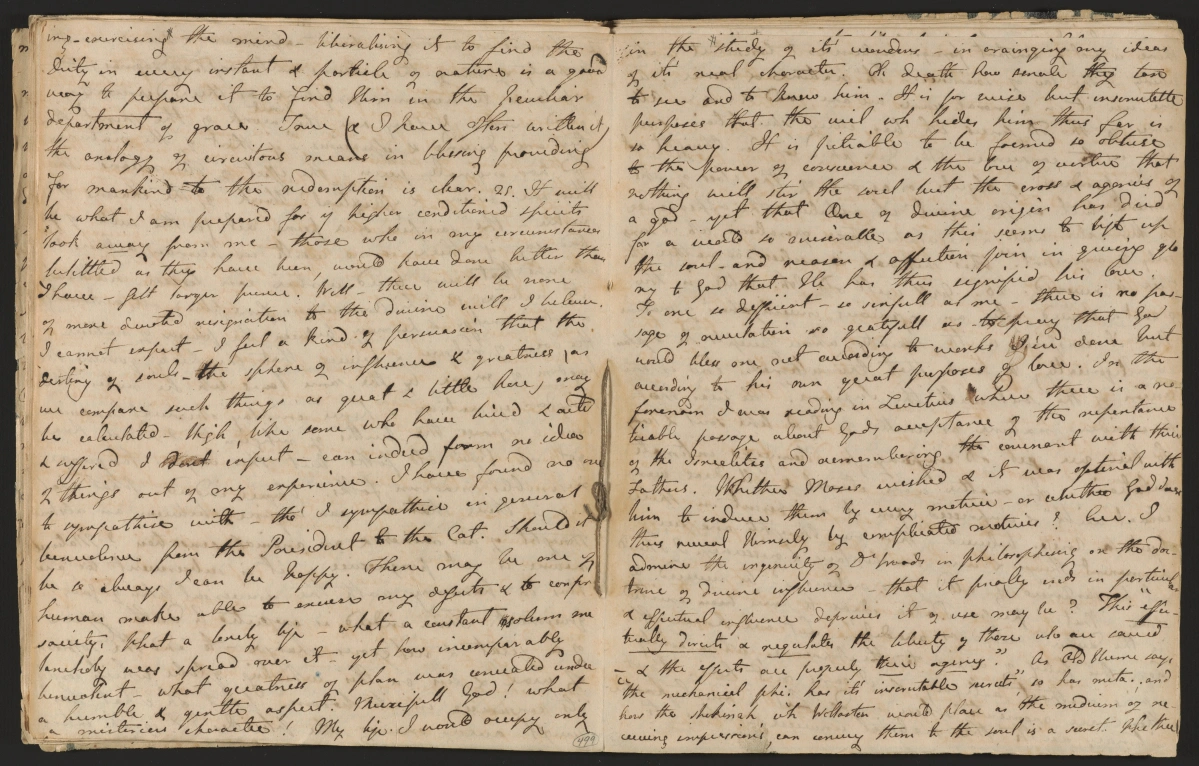 ing - exercising the mind - liberalising it to find the
Deity in every instant & particle of nature is a good
way to prepare it to find Him in the peculiar
department of grace True (& I have often written it,
the analogy of circuitous means in blessing providing
for mankind to the redemption is clear. 25. It will
be what I am prepared for if higher conditioned spirits
look away from me - those who in my circumstances
belittled as they have been, would have done better than
I have - felt larger
Well - there will be none
of more devoted resignation to the divine will I believe.
I cannot expect - I feel a kind of persuasion that the
destiny of souls - the sphere of influence & greatness (as
we compare such things as great & little here) may
be calculated - High, like some who have lived & acted
& suffered I dont expect - can indeed form no idea
of things out of my experience. I have found no one
to sympathise with - tho' I sympathise in general
benevolence from the President to the Cat. Should it
be so always I can be happy. There may be none of
human make able to excuse my defects & to confer
society. What a lonely life - what a constant solemn me
lancholy was spread over it - yet how incomparably
benevolent - what greatness of plan was concealed under
a humble & gentle aspect. Mercifull God! what
a misterious character! My life I would occupy only
499
in the study of its wonders - in arainging my ideas
of its real character. Oh death how small thy task
to see and to know him. It is for wise but inscrutable
purposes that the veil wh hides him thus far is
so heavy. It is pitiable to be formed so obtuse
to the power of conscience & the love of virtue that
nothing will stir the soul but the cross & agonies of
a god - yet that One of divine origin has died
for a world so miserable as this seems to lift up
the soul - and reason & affection join in giving glo
ry to God that He has thus signified his love.
To one so deficient - so sinfull as me - there is no pas-
sage of revelation so gratefull as to pray that God
would bless me not according to works I've done but
according to his own great purposes of love. In the
forenoon I was reading in Leviticus where there is a no-
ticable passage about Gods acceptance of the repentance
of the Israelites and remembering the covenant with their
Fathers. Whether Moses wished & it was optional with
him to induce them by every motive - or whether God does
thus reveal Himself by complicated motives? Eve. I
admire the ingenuity of Dr Woods in philosophising on the doc-
trine of divine influence - that it finally ends in particular
& effectual influence deprives it of use may be? This "effec-
tually directs & regulates the liberty of those who are saved
- & the effects are properly their agency." As Old Hume says
"the mechanical phi. has its inscrutable secrets", so has meta., and
how the shekinah, wh Wollaston would place as the medium of re
ceiving impressions, can convey them to the soul is a secret. Whether